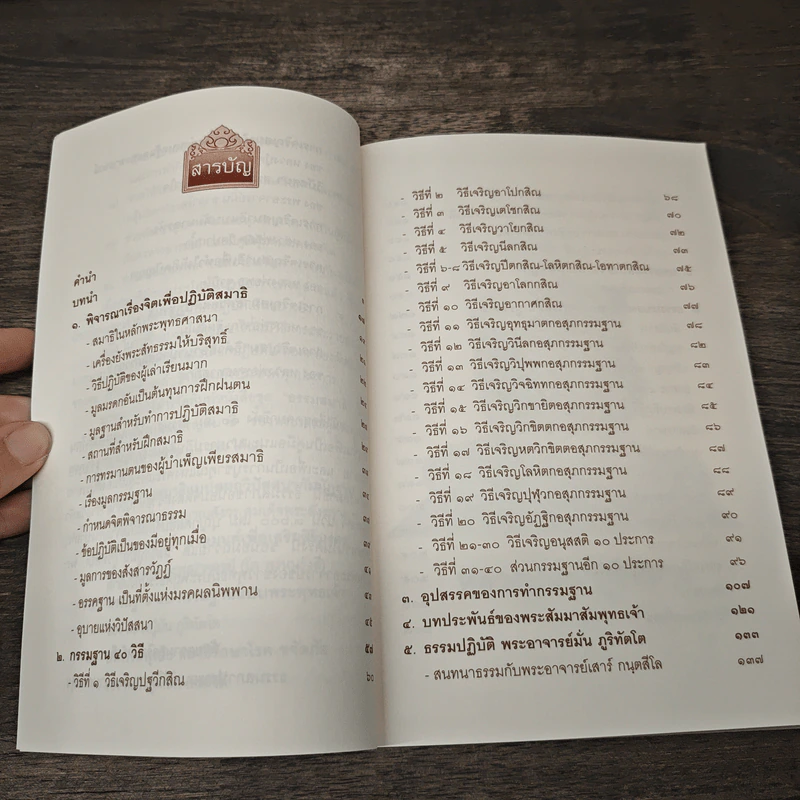 สารบัญ
คำนำ
บทนำ
๑. พิจารณาเรื่องจิตเพื่อปฏิบัติสมาธิ
- สมาธิในหลักพระพุทธศาสนา
- เครื่องยังพระสัทธรรมให้บริสุทธิ์
- วิธีปฏิบัติของผู้เล่าเรียนมาก
- มูลมรดกอันเป็นต้นทุนการฝึกฝนตน
- มูลฐานสำหรับทำการปฏิบัติสมาธิ
- สถานที่สำหรับฝึกสมาธิ
- การทรมานตนของผู้บำเพ็ญเพียรสมาธิ
- เรื่องมูลกรรมฐาน
- กำหนดจิตพิจารณาธรรม
- ข้อปฏิบัติเป็นของมีอยู่ทุกเมื่อ
- มูลการของสังสารวัฏฏ์
- อรรคฐาน เป็นที่ตั้งแห่งมรคผลนิพพาน
- อุบายแห่งวิปัสสนา
๒. กรรมฐาน ๔๐ วิธี
- วิธีที่ ๑ วิธีเจริญปฐวีกสิณ ๖๐
- วิธีที่ ๒ วิธีเจริญอาโปกสิณ ๖๘
- วิธีที่ ๓ วิธีเจริญเตโชกสิณ ๗๐
- วิธีที่ ๔ วิธีเจริญวาโยกสิณ ๗๒
- วิธีที่ ๕ วิธีเจริญนีลกสิณ ๗๓
- วิธีที่ ๖-๘ วิธีเจริญปีตกสิณ-โลหิตกสิณ-โอทาตกสิณ ๗๕
- วิธีที่ ๙ วิธีเจริญอาโลกกสิณ ๗๖
- วิธีที่ ๑๐ วิธีเจริญอากาศกสิณ ๗๗
- วิธีที่ ๑๑ วิธีเจริญอุทธุมาตกอสุภกรรมฐาน ๗๘
- วิธีที่ ๑๒ วิธีเจริญวินีลกอสุภกรรมฐาน ๘๒
- วิธีที่ ๑๓ วิธีเจริญวิปุพพกอสุภกรรมฐาน ๘๓
- วิธีที่ ๑๔ วิธีเจริญวิจฉิททกอสุภกรรมฐาน ๘๔
- วิธีที่ ๑๕ วิธีเจริญวิกขายิตกอสุภกรรมฐาน ๘๕
- วิธีที่ ๑๖ วิธีเจริญวิกขิตตกอสุภกรรมฐาน ๘๖
- วิธีที่ ๑๗ วิธีเจริญหตวิกขิตตกอสุภกรรมฐาน ๘๗
- วิธีที่ ๑๘ วิธีเจริญโลหิตกอสุภกรรมฐาน ๘๘
- วิธีที่ ๑๙ วิธีเจริญปุฬุวกอสุภกรรมฐาน ๘๙
- วิธีที่ ๒๐ วิธีเจริญอัฏฐิกอสุภกรรมฐาน ๙๐
- วิธีที่ ๒๑-๓๐ วิธีเจริญอนุสสติ ๑๐ ประการ ๙๑
- วิธีที่ ๓๑-๔๐ ส่วนกรรมฐานอีก ๑๐ ประการ ๙๖
๓. อุปสรรคของการทำกรรมฐาน ๑๐๗
๔. บทประพันธ์ของพระสัมมาสัมพุทธเจ้า ๑๒๑
๕. ธรรมปฏิบัติ พระอาจารย์มั่น ภูริทัตโต ๑๓๓
- สนทนาธรรมกับพระอาจารย์เสาร์ กนฺตสีโล ๑๓๗